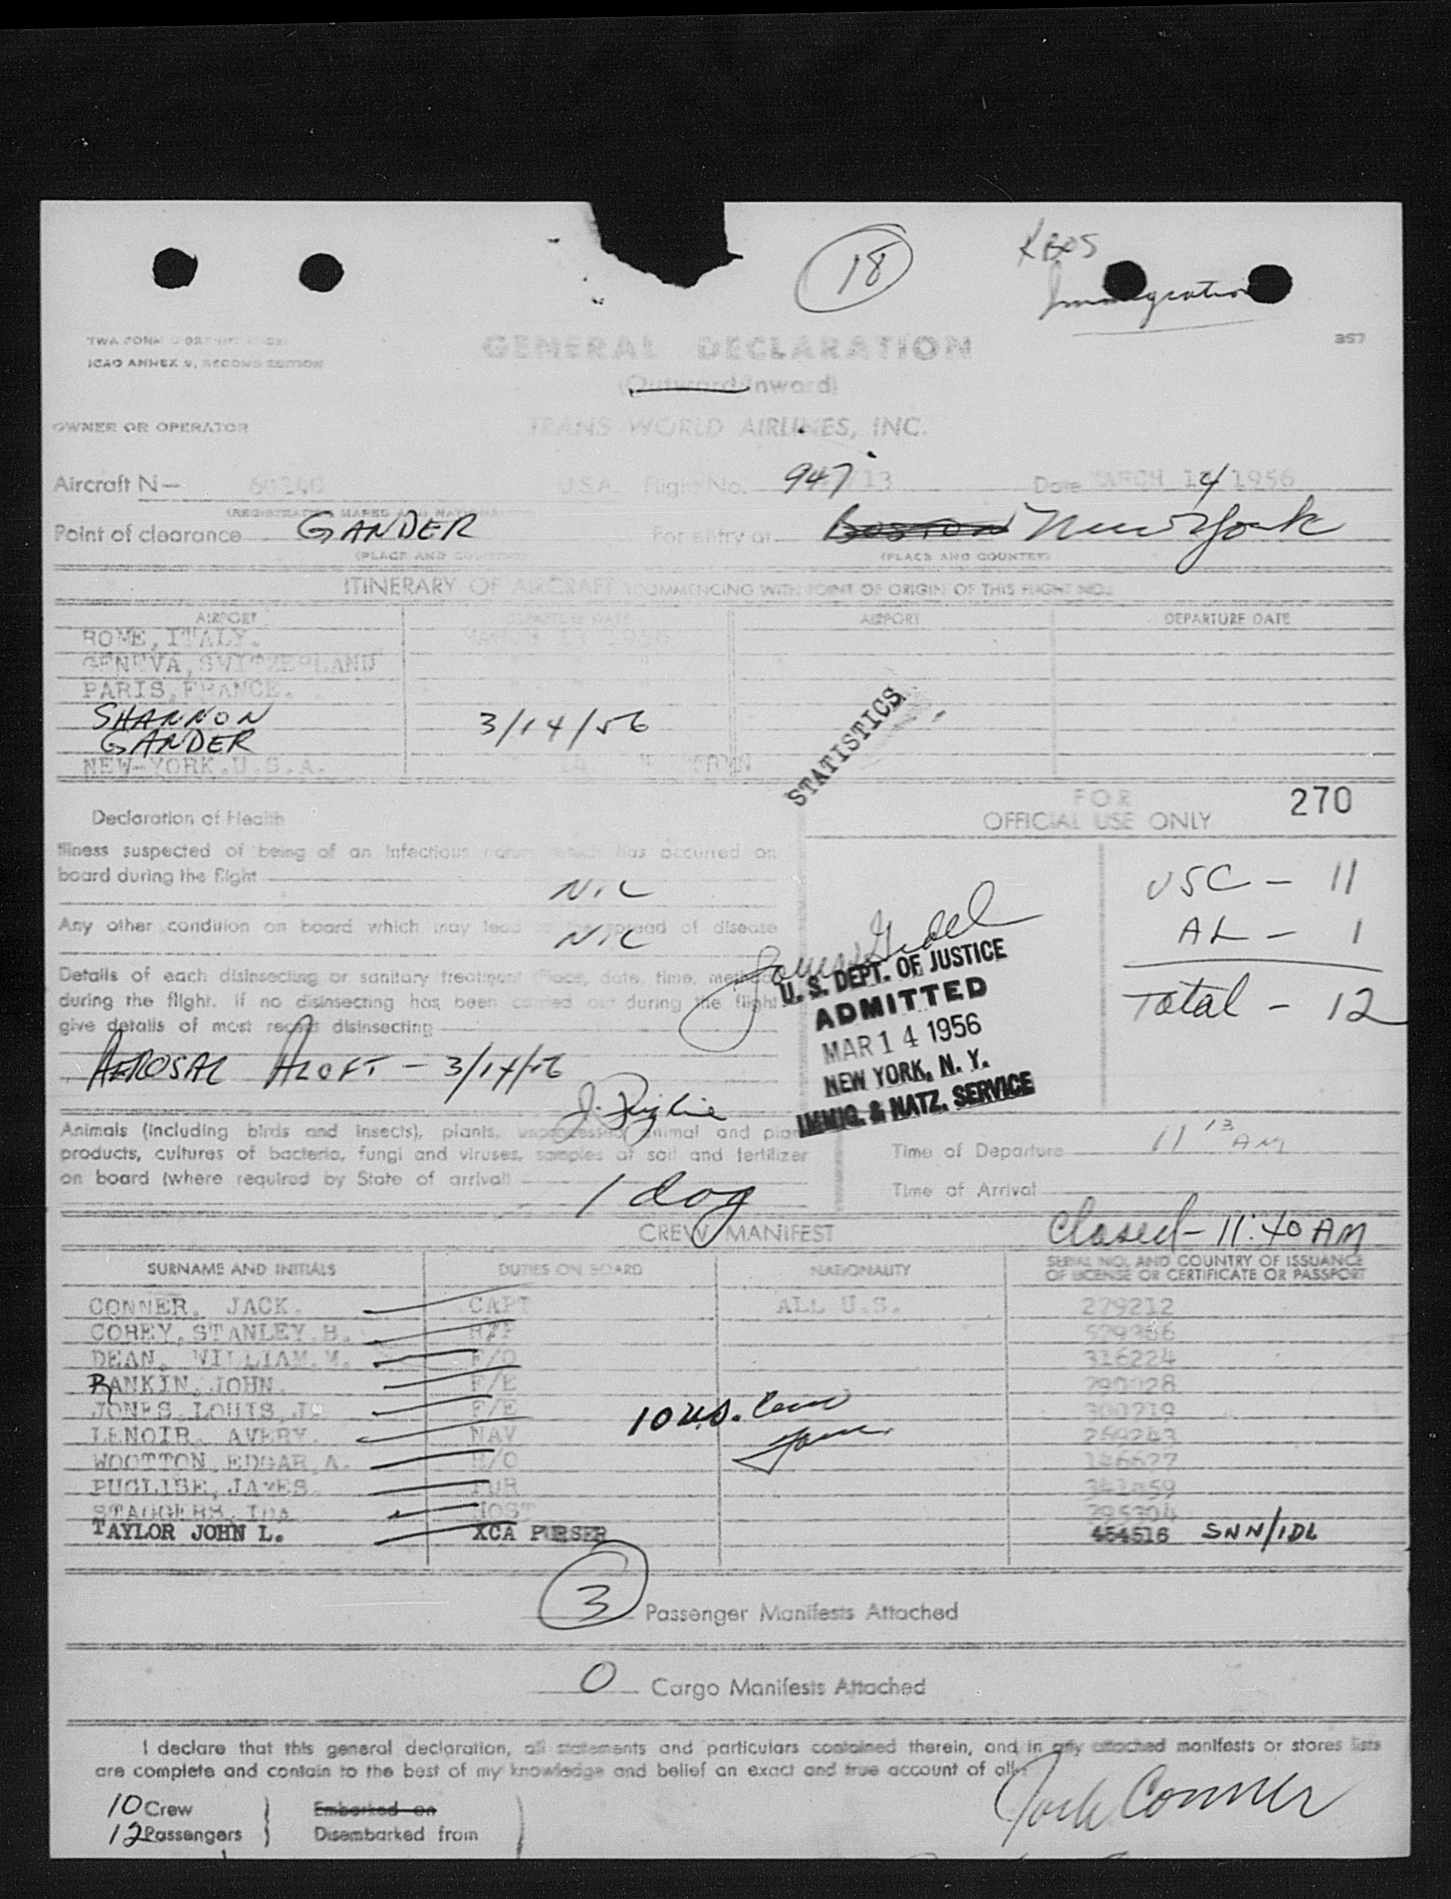 18
KBOS
Immigration
357
ICAO ANNEX 9, SECOND EDITION
GENERAL DECLARATION
(Outward/Inward)
OWNER OR OPERATOR TRANS WORLD AIRLINES, INC.
Aircraft N— U.S.A. Flight No. 947/13 Date MARCH 14 1956
(REGISTRATION MARKS AND NATIONALITY)
Point of clearance GANDER For entry at BOSTON New York
(PLACE AND COUNTRY) (PLACE AND COUNTRY)
ITINERARY OF AIRCRAFT (COMMENCING WITH POINT OF ORIGIN OF THIS FLIGHT NO.)
AIRPORT DEPARTURE DATE AIRPORT DEPARTURE DATE
ROME, ITALY.
GENEVA, SWITZERLAND
PARIS, FRANCE.
SHANNON 3/14/56
GANDER
NEW-YORK.U.S.A.
STATISTICS
FOR
OFFICIAL USE ONLY 270
Declaration of Health
Illness suspected of being of an infectious nature which has occurred on
board during the flight NIL
Any other condition on board which may lead to the spread of disease
NIL
USC - 11
AL - 1
Total - 12
Details of each disinsecting or sanitary treatment (Place, date, time, method)
during the flight. If no disinsecting has been carried out during the flight
give details of most recent disinsecting
AEROSAL ALOFT - 3/14/56
U. S. DEPT. OF JUSTICE
ADMITTED
MAR 14 1956
NEW YORK, N. Y.
IMMIG. & NATZ. SERVICE
Animals (including birds and insects), plants, unprocessed animal and plant
products, cultures of bacteria, fungi and viruses, samples of soil and fertilizer
on board (where required by State of arrival) 1 dog
Time of Departure 11 13 AM
Time of Arrival
Closed - 11:40 AM
CREW MANIFEST
SURNAME AND INITIALS DUTIES ON BOARD NATIONALITY SERIAL NO. AND COUNTRY OF ISSUANCE
OF LICENSE OR CERTIFICATE OR PASSPORT
CONNER, JACK. CAPT ALL U.S. 279212
COREY, STANLEY.H.
DEAN, WILLIAM.M. F/O 316224
RANKIN, JOHN. F/E
JONES, LOUIS,J. F/E 300219
LENOIR, AVERY. NAV 269243
WOOTTON, EDGAR,A. R/O 146627
PUGLISE, JAMES. PUR
STAGGERS, IDA HOST
TAYLOR JOHN L. XCA PURSER 454516 SNN/IDL
10 U.S. Crew
3 Passenger Manifests Attached
0 Cargo Manifests Attached
I declare that this general declaration, all statements and particulars contained therein, and in any attached manifests or stores lists
are complete and contain to the best of my knowledge and belief an exact and true account of all:
Jack Conner
10 Crew } Embarked on
12 Passengers } Disembarked from